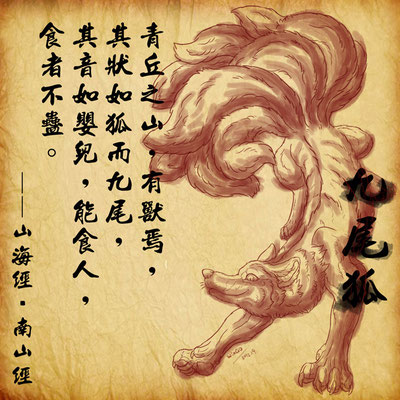 九尾狐
青丘之山，有獸焉，
其狀如狐而九尾，
其音如嬰兒，能食人，
食者不蠱。
——山海經·南山經